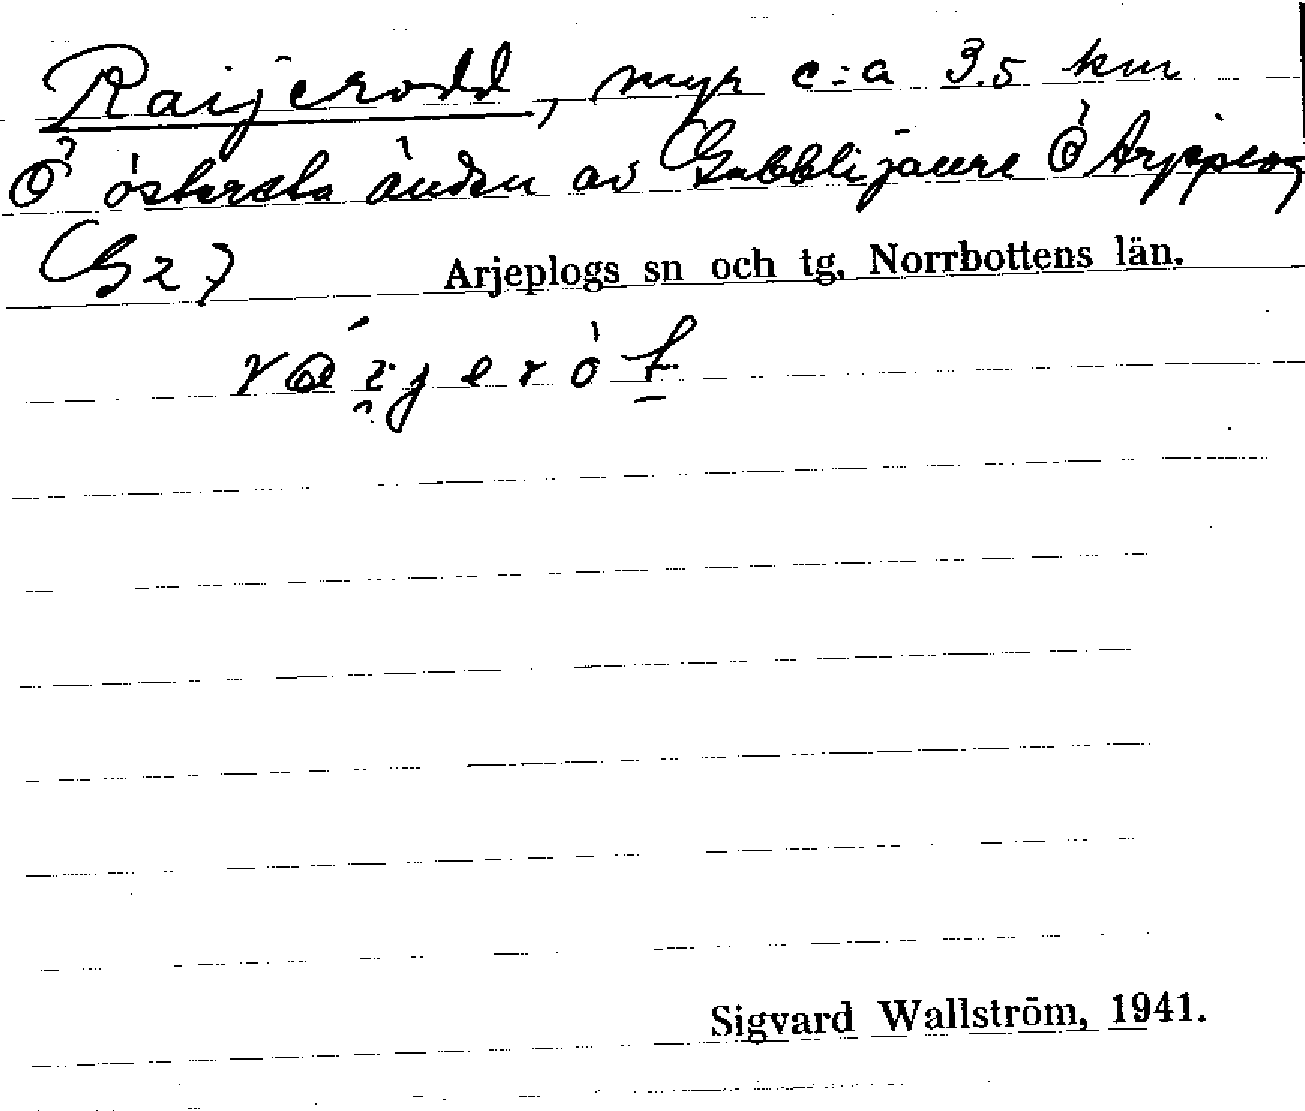 Raijerodd, myr c:a 3.5 km
Ö östersta änden av Gubblijaure Ö Arjeplog
G27
Arjeplogs sn och tg, Norrbottens län.
Sigvard Wallström, 1941.